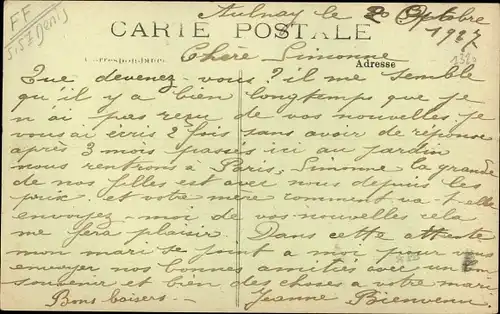 FF
S/S
Denis
Aulnay le 20 Octobre
CARTE POSTALE
1927
Correspondance
Chère Simonne
Adresse
Que devenez-vous? il me semble
qu'il y a bien longtemps que je
n'ai pas reçu de vos nouvelles. je
vous ai écris 2 fois sans avoir de réponse
après 3 mois passés ici au jardin
nous rentrons à Paris, Simonne la grande
de nos filles est avec nous depuis les
prix. et votre mère comment va-t-elle
envoyez-moi de vos nouvelles cela
me fera plaisir. Dans cette attente
mon mari se joint a moi pour vous
envoyer nos bonnes amitiés avec un bon
souvenir et bien des choses a votre mari
Bons baisers - Jeanne Bienvenu.